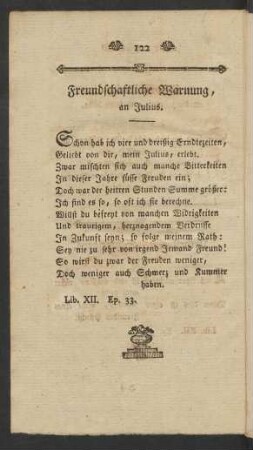 122
Freundschaftliche Warnung,
an Julius.
Schon hab ich vier und dreißig Erndtezeiten,
Geliebt von dir, mein Julius, erlebt.
Zwar mischten sich auch manche Bitterkeiten
In dieser Jahre süsse Freuden ein;
Doch war der heitren Stunden Summe größer:
Ich find es so, so oft ich sie berechne.
Willst du befreyt von manchen Widrigkeiten
Und traurigem, herznagendem Verdrusse
In Zukunft seyn; so folge meinem Rath:
Sey nie zu sehr von irgend Jemand Freund!
So wirst du zwar der Freuden weniger,
Doch weniger auch Schmerz und Kummer
haben.
Lib. XII. Ep. 33.